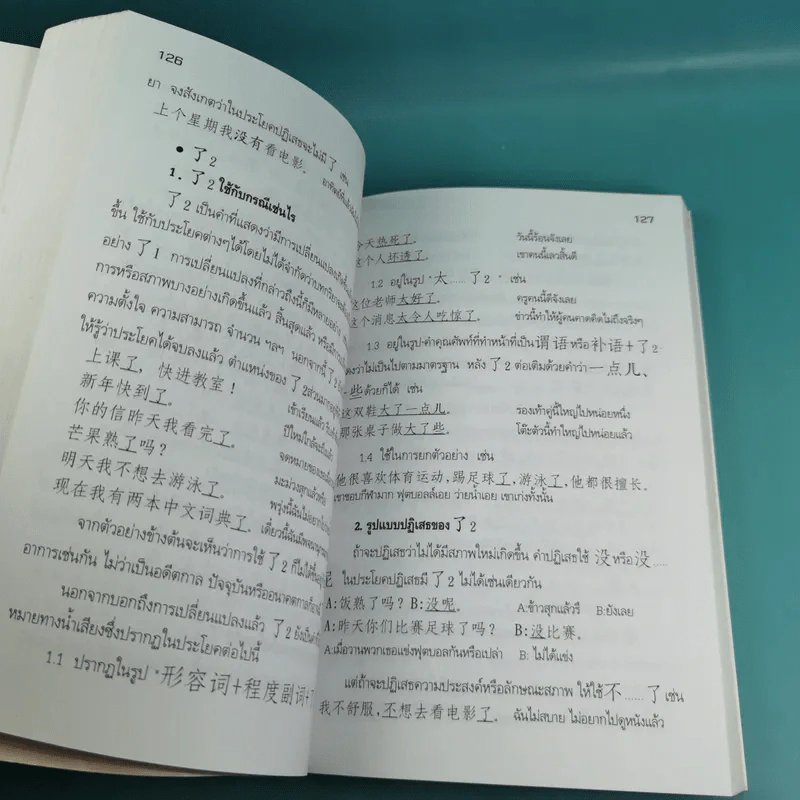 126
ยา จงสังเกตว่าในประโยคปฏิเสธจะไม่มี 了 เช่น
上个星期我没有看电影。
• 了2
1. 了2 ใช้กับกรณีเช่นไร
了2 เป็นคำที่แสดงว่ามีการเปลี่ยนแปลง
ขึ้น ใช้กับประโยคต่างๆได้โดยไม่ได้จำกัดว่า
อย่าง 了1 การเปลี่ยนแปลงที่กล่าวถึงนี้ก็มีหลายอย่าง
การหรือสภาพบางอย่างเกิดขึ้นแล้ว สิ้นสุดแล้ว
ความตั้งใจ ความสามารถ จำนวน ฯลฯ นอกจากนี้ 了2
ให้รู้ว่าประโยคได้จบลงแล้ว ตำแหน่งของ 了2
上课了，快进教室！ เข้าเรียนแล้ว
新年快到了。 ปีใหม่ใกล้จะถึงแล้ว
你的信昨天我看完了。
芒果熟了吗？ มะม่วงสุกแล้วหรือ
明天我不想去游泳了。
现在我有两本中文词典了。
จากตัวอย่างข้างต้นจะเห็นว่าการใช้ 了2 ก็ไม่ได้
อาการเช่นกัน ไม่ว่าเป็นอดีตกาล ปัจจุบันหรืออนาคตกาล
นอกจากบอกถึงการเปลี่ยนแปลงแล้ว 了2
หมายทางน้ำเสียงซึ่งปรากฏในประโยคต่อไปนี้
1.1 ปรากฏในรูป "形容词+程度副词+
127
今天热死了。 วันนี้ร้อนจังเลย
这个人坏透了。 เขาคนนี้เลวสิ้นดี
1.2 อยู่ในรูป "太……了2" เช่น
这位老师太好了。 ครูคนนี้ดีจังเลย
这个消息太令人吃惊了。 ข่าวนี้ทำให้ผู้คนคาดคิดไม่ถึงจริงๆ
1.3 อยู่ในรูป "คำคุณศัพท์ที่ทำหน้าที่เป็น 谓语 หรือ 补语+了2
แสดงว่าไม่เป็นไปตามมาตรฐาน หลัง 了2 ต่อเติมด้วยคำว่า 一点儿、
些 ด้วยก็ได้ เช่น
这双鞋大了一点儿。 รองเท้าคู่นี้ใหญ่ไปหน่อยหนึ่ง
那张桌子做大了些。 โต๊ะตัวนี้ทำใหญ่ไปหน่อยแล้ว
1.4 ใช้ในการยกตัวอย่าง เช่น
他很喜欢体育运动，踢足球了，游泳了，他都很擅长。
เขาชอบกีฬามาก ฟุตบอลล์เอย ว่ายน้ำเอย เขาเก่งทั้งนั้น
2. รูปแบบปฏิเสธของ 了2
ถ้าจะปฏิเสธว่าไม่ได้มีสภาพใหม่เกิดขึ้น คำปฏิเสธใช้ 没 หรือ 没……
呢 ในประโยคปฏิเสธมี 了2 ไม่ได้เช่นเดียวกัน
A:饭熟了吗？ B:没呢。 A:ข้าวสุกแล้วรึ B:ยังเลย
A:昨天你们比赛足球了吗？ B:没比赛。
A:เมื่อวานพวกเธอแข่งฟุตบอลกันหรือเปล่า B: ไม่ได้แข่ง
แต่ถ้าจะปฏิเสธความประสงค์หรือลักษณะสภาพ ให้ใช้ 不……了 เช่น
我不舒服，不想去看电影了。 ฉันไม่สบาย ไม่อยากไปดูหนังแล้ว